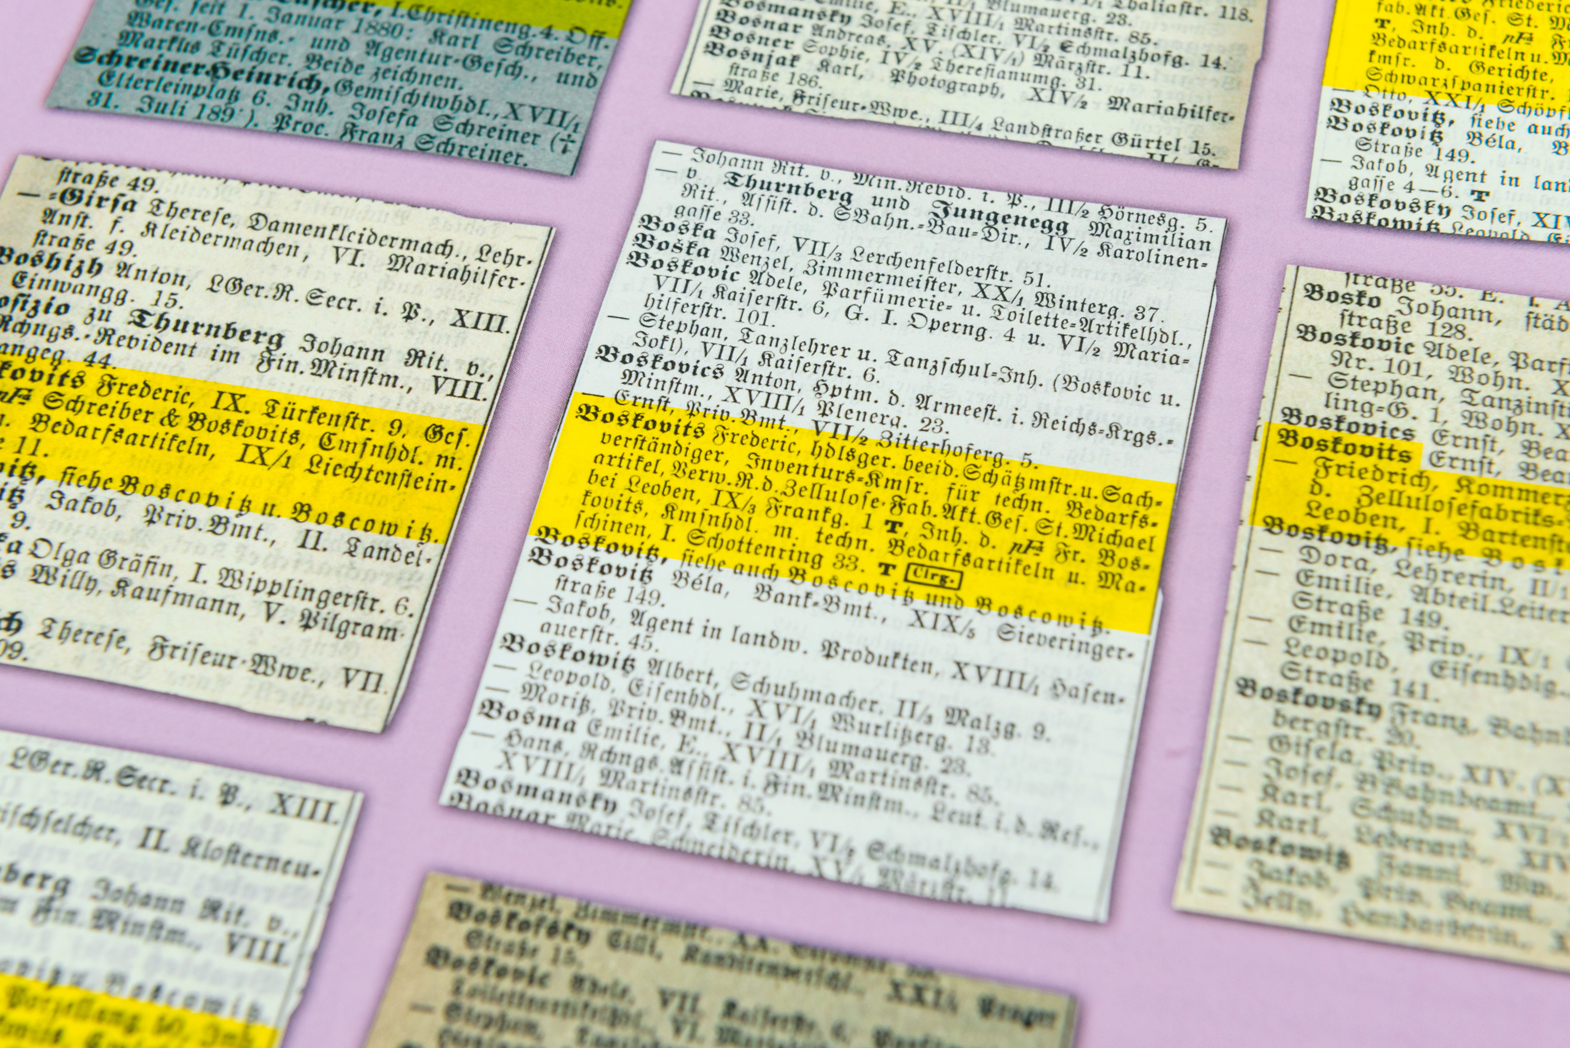 Tüscher, I. Christineng. 4. Off.
Ges. seit 1. Januar 1880: Karl Schreiber,
Waren-Cmsns.- und Agentur-Gesch., und
Markus Tüscher. Beide zeichnen.
Schreiner Heinrich, Gemischtwhdl., XVII/1
Elterleinplatz 6. Inh. Josefa Schreiner (†
31. Juli 189*). Proc. Franz Schreiner.
Bosmansky Josef, Tischler, VI/2 Schmalzhofg. 14.
Bosnar Andreas, XV. (XIV/1) Märzstr. 11.
Bosner Sophie, IV/2 Theresianumg. 31.
Bosnjak Karl, Photograph, XIV/2 Mariahilfer-
straße 186.
— Marie, Friseur-Wwe., III/4 Landstraßer Gürtel 15.
fab. Akt. Ges. St. M
T, Inh. d.
Bedarfsartikeln u.
kmsr. d. Gerichte,
Schwarzspanierstr.
— Otto, XXI/1 Schöpf
Boskovitz, siehe auch
Boskovitz Béla, B
Straße 149.
— Jakob, Agent in lan
gasse 4—6. T
Boskovsky Josef, XIV
Boskowitz Leopold,
straße 49.
— -Girsa Therese, Damenkleidermach., Lehr-
Anst. f. Kleidermachen, VI. Mariahilfer-
straße 49.
Boshizh Anton, LGer.R. Secr. i. P., XIII.
Einwangg. 15.
ofizio zu Thurnberg Johann Rit. v.,
Rchngs.-Revident im Fin. Minstm., VIII.
angeg. 44.
kovits Frederic, IX. Türkenstr. 9, Ges.
Schreiber & Boskovits, Cmsnhdl. m.
Bedarfsartikeln, IX/1 Liechtenstein-
e 11.
vitz, siehe Boscovitz u. Boscowitz.
itz Jakob, Priv. Bmt., II. Tandel-
9.
ka Olga Gräfin, I. Wipplingerstr. 6.
s Willy, Kaufmann, V. Pilgram-
ch Therese, Friseur-Wwe., VII.
09.
— Johann Rit. v., Min. Revid. i. P., III/2 Hörnesg. 5.
— v. Thurnberg und Jungenegg Maximilian
Rit., Assist. d. SBahn.-Bau-Dir., IV/2 Karolinen-
gasse 33.
Boska Josef, VII/3 Lerchenfelderstr. 51.
Boška Wenzel, Zimmermeister, XX/1 Winterg. 37.
Boskovic Adele, Parfümerie- u. Toilette-Artikelhdl.,
VII/1 Kaiserstr. 6, G. I. Operng. 4 u. VI/2 Maria-
hilferstr. 101.
— Stephan, Tanzlehrer u. Tanzschul-Inh. (Boskovic u.
Jokl), VII/1 Kaiserstr. 6.
Boskovics Anton, Hptm. d. Armeest. i. Reichs-Krgs.-
Minstm., XVIII/1 Plenerg. 23.
— Ernst, Priv. Bmt., VII/2 Zitterhoferg. 5.
Boskovits Frederic, hdlsger. beeid. Schätzmstr. u. Sach-
verständiger, Inventurs-Kmsr. für techn. Bedarfs-
artikel, Verw. R. d. Zellulose-Fab. Akt. Ges. St. Michael
bei Leoben, IX/3 Frankg. 1 T, Inh. d. Fr. Bos-
kovits, Kmsnhdl. m. techn. Bedarfsartikeln u. Ma-
schinen, I. Schottenring 33. T Clrg.
Boskovitz, siehe auch Boscovitz und Boscowitz.
Boskovitz Béla, Bank-Bmt., XIX/5 Sieveringer-
straße 149.
— Jakob, Agent in landw. Produkten, XVIII/1 Hasen-
auerstr. 45.
Boskowitz Albert, Schuhmacher, II/3 Malzg. 9.
— Leopold, Eisenhdl., XVI/1 Wurlitzerg. 13.
— Moritz, Priv. Bmt., II/1 Blumauerg. 23.
Bosma Emilie, E., XVIII/1 Martinsstr. 85.
— Hans, Rchngs. Assist. i. Fin. Minstm., Leut. i. d. Res.,
XVIII/1 Martinsstr. 85.
Bosmansky Josef, Tischler, VI/2 Schmalzhofg. 14.
Bosnar Marie, Schneiderin,
Bosko Johann, städ
straße 128.
Boskovic Adele, Parf
Nr. 101, Wohn. X
— Stephan, Tanzinsti
ling-G. 1, Wohn. X
Boskovics Ernst, Bea
Boskovits Ernst, Bea
— Friedrich, Kommerz
d. Zellulosefabriks-
Leoben, I. Bartenste
Boskovitz, siehe Bos
— Dora, Lehrerin, II/1
— Emilie, Abteil. Leiter
Straße 149.
— Emilie, Priv., IX/1
— Leopold, Eisenhdlg.
Straße 141.
Boskovsky Franz, Bahn
bergstr. 20.
— Gisela, Priv., XIV. (X
— Josef, BBahnbeamt.
— Karl, Schuhm., XVI
— Karl,
Boskowitz
— Jakob, Priv. Beamt.
— Jelly,
LGer.R. Secr. i. P., XIII.
II. Klosterneu-
berg Johann Rit. v.,
Fin. Minstm., VIII.
— Wenzel,
Boskofsky
Straße 15.
Boskovic Adele, VII. Kaiserstr. 6,
— Stephan,